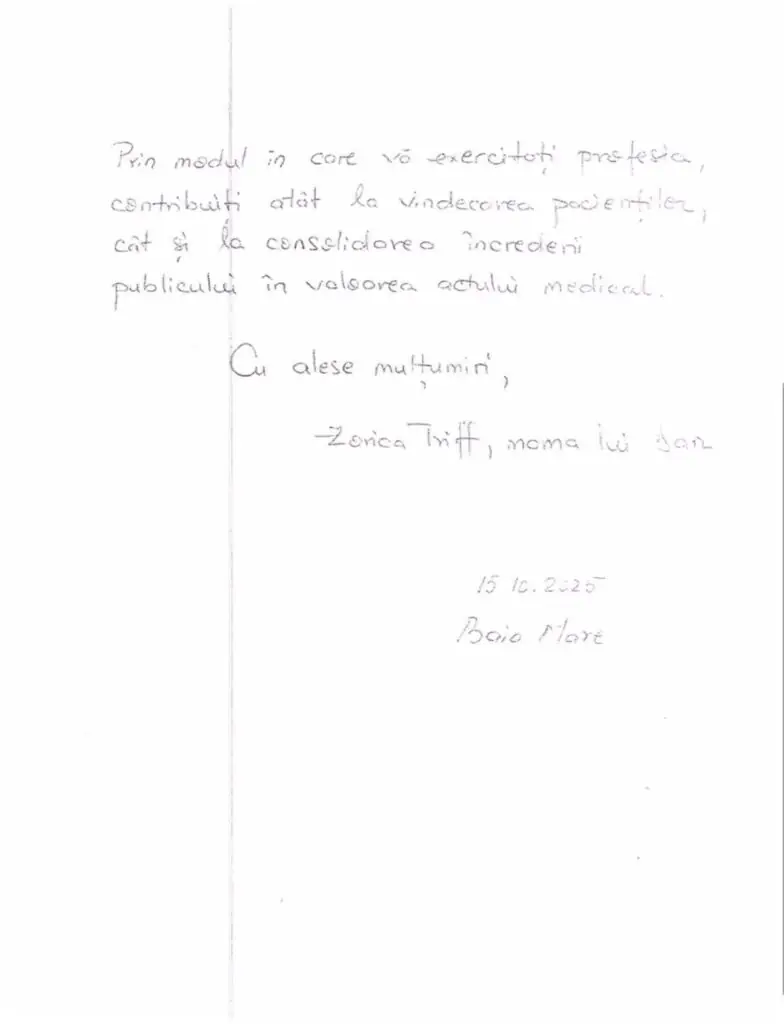 Prin modul în care vă exercitați profesia,
contribuiți atât la vindecarea pacienților,
cât și la consolidarea încrederii
publicului în valoarea actului medical.
Cu alese mulțumiri,
Zorica Triff, mama lui Dan
15 10.2025
Baia Mare